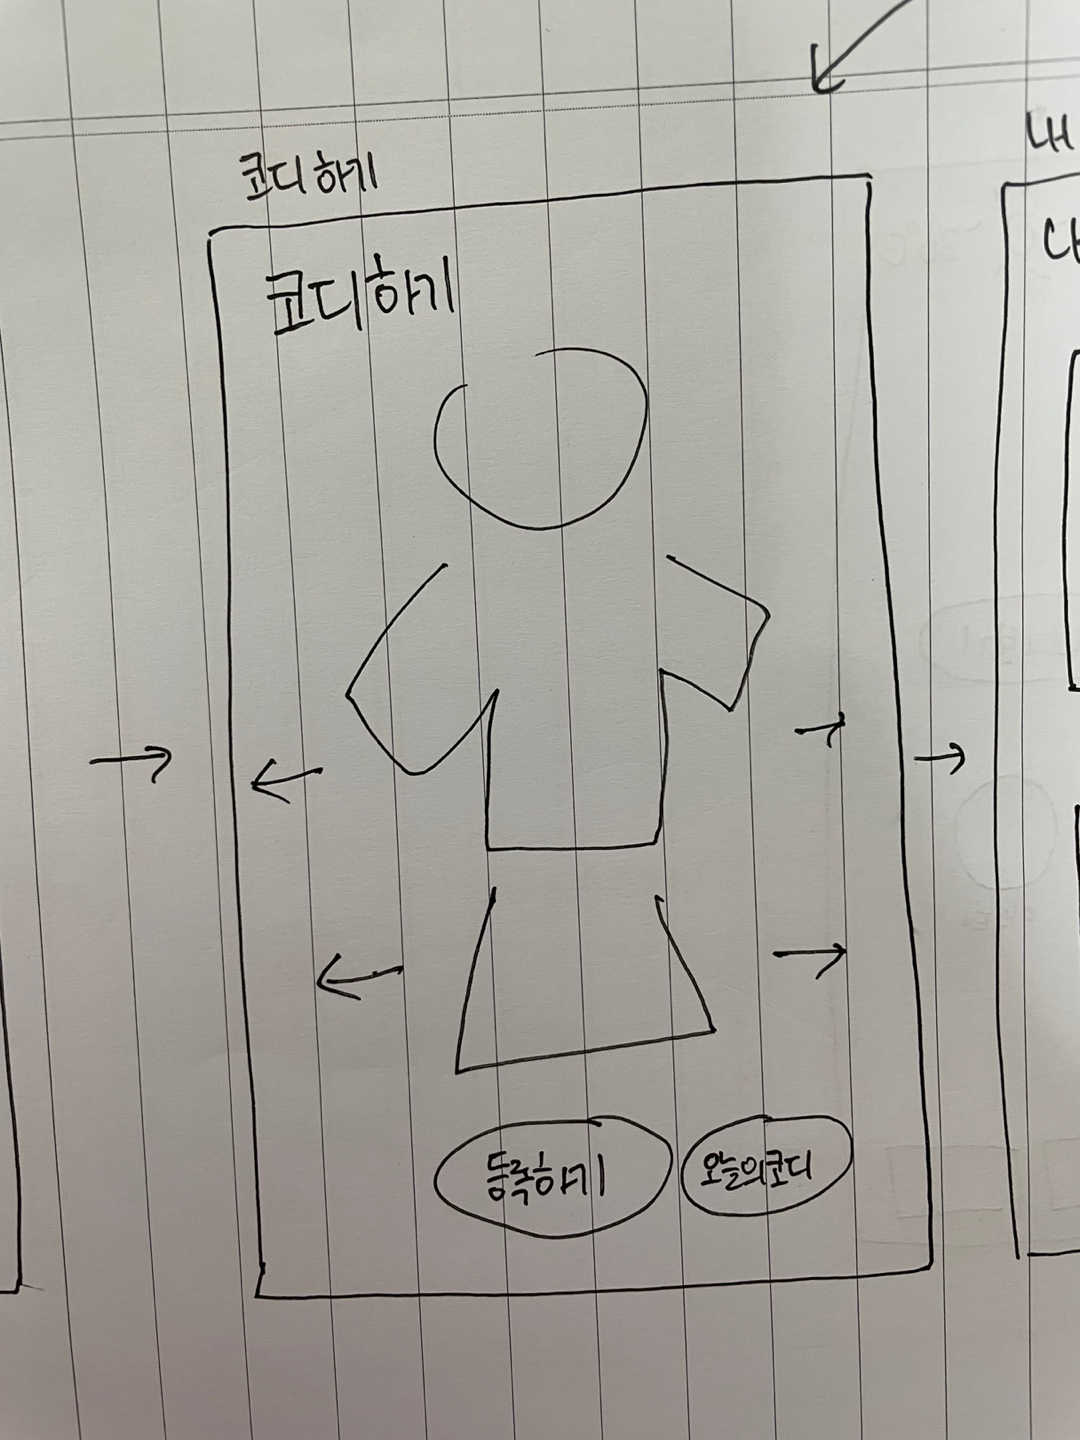 코디하기
코디하기
등록하기
오늘의코디
내